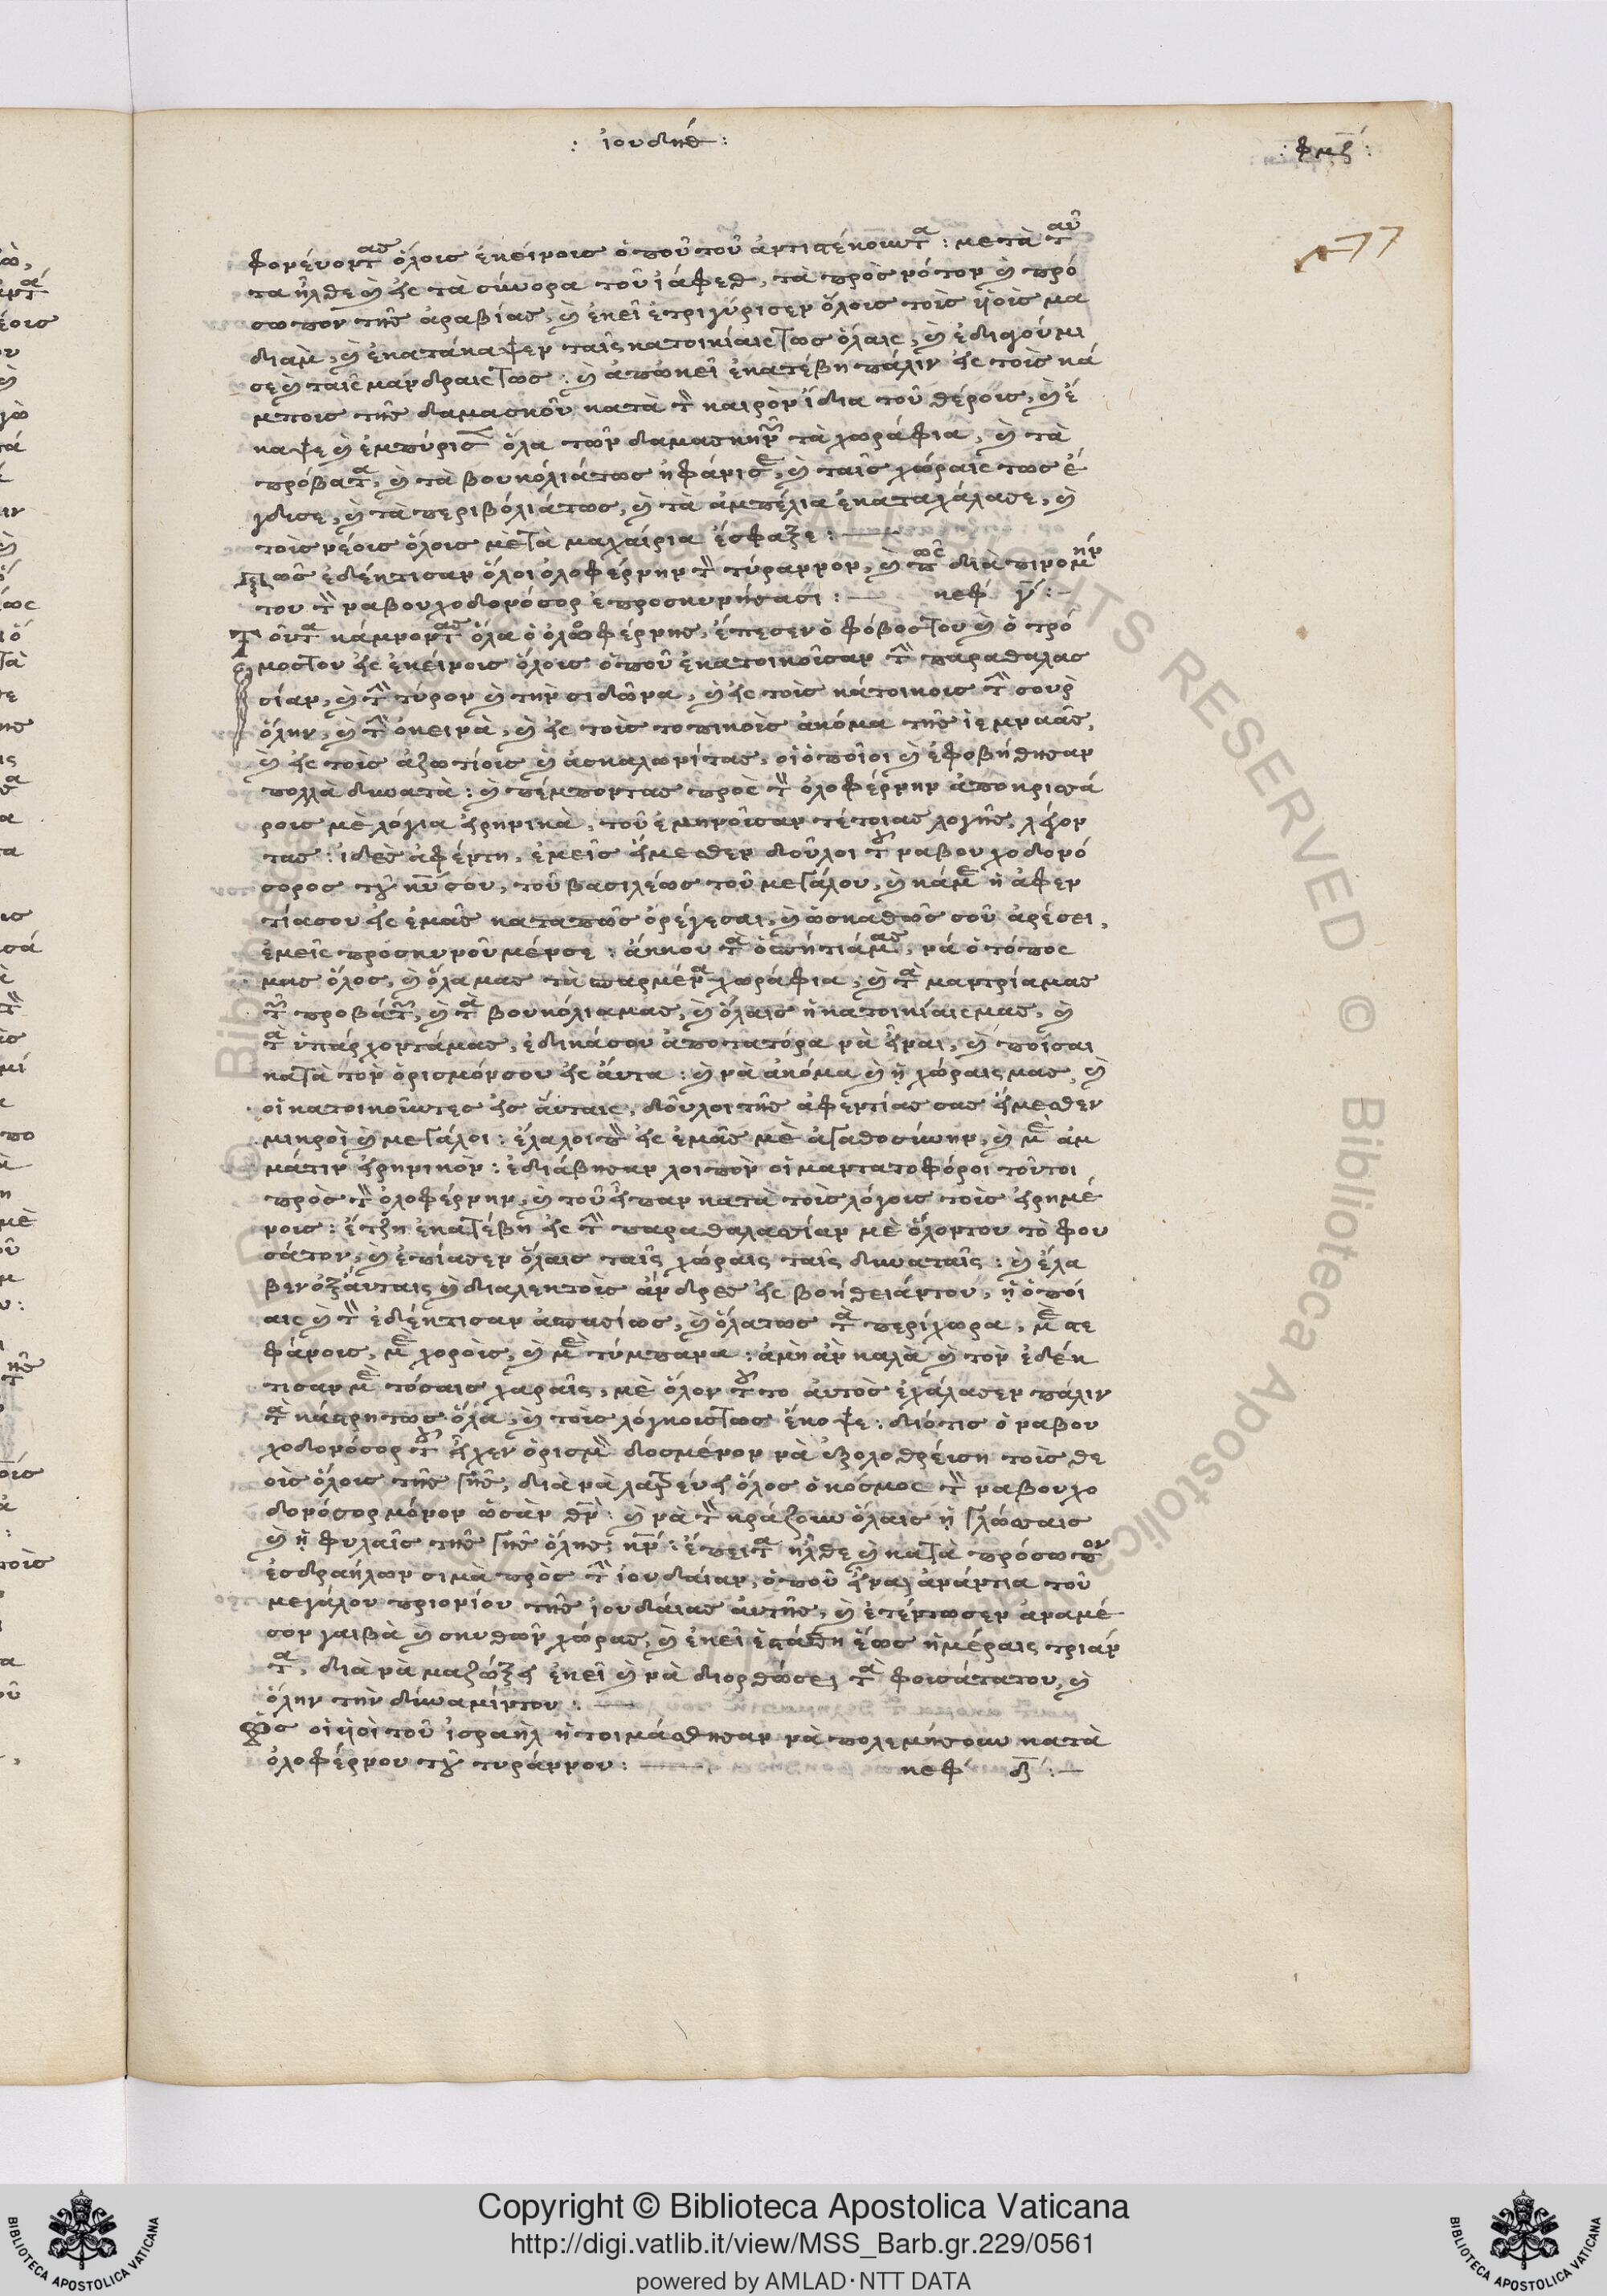 : ἰουδήθ :
: φμζ :
177
φονεύοντας ὅλοις ἐκείνοις ὁποῦ τοῦ ἀντιστέκουντα : μετὰ ταῦ
τα ἦλθε καὶ εἰς τὰ σύνορα τοῦ ἰάφεθ, τὰ πρὸς νότον καὶ πρό
σωπον τῆς ἀραβίας, καὶ ἐκεῖ ἐτριγύρισεν ὅλοις τοὶς υἱοὶς μα
διαμ, καὶ ἐκατάκαψεν ταῖς κατοικίαις τως ὅλαις, καὶ ἐδιαγούμι
σε καὶ ταῖς μάνδραις τως : καὶ ἀπῶκεῖ ἐκατέβη πάλιν εἰς τοὶς κά
μποις τῆς δαμασκοῦ κατὰ τὸν καιρὸν ἴδια τοῦ θέροις, καὶ ἔ
καψε καὶ ἐμπύρισε ὅλα τῶν δαμασκηνῶν τὰ χωράφια, καὶ τὰ
πρόβατα, καὶ τὰ βουκόλιάτως ἠφάνισε, καὶ ταῖς χώραις τως ἔ
γδισε, καὶ τὰ περιβόλιάτως, καὶ τὰ ἀμπέλια ἐκαταχάλασε, καὶ
τοὶς νέοις ὅλοις μὲ τὰ μαχαίρια ἔσφαξε :
Πῶς ἐδέκτισαν ὅλοι ὁλοφέρνην τὸν τύραννον, καὶ πῶς διὰ
του τὸν ναβουχοδονόσορ ἐπροσκυνήσασι : κεφ γ :
Τοῦτα κάμνοντας ὅλα ὁ ὀλωφέρνης, ἔπεσεν ὁ φόβος του καὶ ὁ τρό
μος του εἰς ἐκείνοις ὅλοις ὁποῦ ἐκατοικοῦσαν τὴν παραθαλασ
σίαν, καὶ τὴν τύρον καὶ τὴν σιδῶνα, καὶ εἰς τοὶς κάτοικοις τὴν σουρ
ὅλην, καὶ τὴν ὀκεινὰ, καὶ εἰς τοὶς τοπικοὶς ἀκόμα τῆς ἰεμναᾶς,
καὶ εἰς τοὶς ἀζωτίοις καὶ ἀσκαλωνίτας, οἱ ὁποῖοι καὶ ἐφοβήθησαν
πολλὰ δυνατὰ : καὶ πέμποντας πρὸς τὸν ὀλοφέρνην ἀποκρισά
ροις μὲ λόγια εἰρηνικὰ, τοῦ ἐμηνοῦσαν τέτοιας λογῆς, λέγον
τας : ἰδὲς ἀφέντη, ἐμεῖς εἴμεσθεν δοῦλοι τοῦ ναβουχοδονό
σορος τοῦ κυρίου σου, τοῦ βασιλέως τοῦ μεγάλου, καὶ κάμε ἡ ἀφεν
τίασου εἰς ἐμᾶς καταπῶς ὀρέγεσαι, καὶ ὡσκαθὼς σοῦ ἀρέσει,
ἐμεῖς προσκυνοῦμένσε : ἄκκου τὰ ὁσπήτιάμας, νά ὁ τόπος
μας ὅλος, καὶ ὅλα μας τὰ σπαρμένα χωράφια, καὶ τὰ μαντρίαμας
τῶν προβάτων, καὶ τὰ βουκόλιαμας, καὶ ὅλαις ἡ κατοικίαις μας, καὶ
τὰ ὑπάρχοντάμας, ἐδικάσου ἀποτατόρα νὰ εἶναι, καὶ ποίσαι
κατὰ τὸν ὁρισμόνσου εἰς ἄυτα : καὶ νὰ ἀκόμα καὶ ἡ χώραις μας, καὶ
οἱ κατοικοῦντες εἰς ἄυταις, δοῦλοι τῆς ἀφεντίας σας εἴμεσθεν
μικροὶ καὶ μεγάλοι : ἔλα λοιπὸν εἰς ἐμᾶς μὲ ἀγαθοσύνην, καὶ μὲ ἀμ
μάτιν εἰρηνικόν : ἐδιάβησαν λοιπὸν οἱ μαντατοφόροι τοῦτοι
πρὸς τὸν ὀλοφέρνην, καὶ τοῦ εἶπαν κατὰ τοὶς λόγοις τοὶς εἰρημέ
νοις : ἔτζη ἐκατέβη εἰς τὴν παραθαλασσίαν μὲ ὅλοντου τὸ φου
σάτον, καὶ ἐπίασεν ὅλαις ταῖς χώραις ταῖς δυναταῖς : καὶ ἔλα
βεν ὀξ ἄυταις καὶ διαλεκτοὶς ἄνδρες εἰς βοήθειάντου, ἡ ὁποί
αις καὶ τὸν ἐδέκτισαν ἀσπασίως, καὶ ὅλατως τὰ περίχωρα, μὲ στε
φάνοις, μὲ χοροὶς, καὶ μὲ τύμπανα : ἀμὴ ἂν καλὰ καὶ τὸν ἐδέκ
τισαν μὲ τόσαις χαραῖς, μὲ ὅλον τοῦτο ἀυτὸς ἐχάλασεν πάλιν
τὰ κάστρητως ὅλα, καὶ τοὶς λόγκοιστως ἔκοψε : διότις ὁ ναβου
χοδονόσορ τοῦ εἶχεν ὁρισμὸν δοσμένον νὰ ἐξολοθρεύση τοὶς θε
οὶς ὅλοις τῆς γῆς, διὰ νὰ λατρεύη ὅλος ὁ κόσμος τὸν ναβουχο
δονόσορ μόνον ὡσὰν θεὸν : καὶ νὰ τὸν κράζουν ὅλαις ἡ γλώσσαις
καὶ ἡ φυλαῖς τῆς γῆς ὅλης κύριον : ἔπειτα ἦλθε καὶ κατὰ πρόσωπον
ἐσδραήλων σιμὰ πρὸς τὴν ἰουδαίαν, ὁποῦ εἶναι ἀνάντια τοῦ
μεγάλου πριονίου τῆς ἰουδάιας ἀυτῆς, καὶ ἐτέντωσεν ἀναμέ
σον γαιβὰ καὶ σκυθῶν χώρας, καὶ ἐκεῖ ἐστάθη ἕως ἡμέραις τριάν
τα, διὰ νὰ μαζώξη ἐκεῖ καὶ νὰ διορθώσει τὰ φουσάτατου, καὶ
ὅλην τὴν δύναμίντου :
Πῶς οἱ υἱοὶ τοῦ ἰσραὴλ ἡτοιμάσθησαν νὰ πολεμήσουν κατὰ
ὀλοφέρνου τοῦ τυράννου : κεφ δ :
Copyright © Biblioteca Apostolica Vaticana
http://digi.vatlib.it/view/MSS_Barb.gr.229/0561
powered by AMLAD·NTT DATA